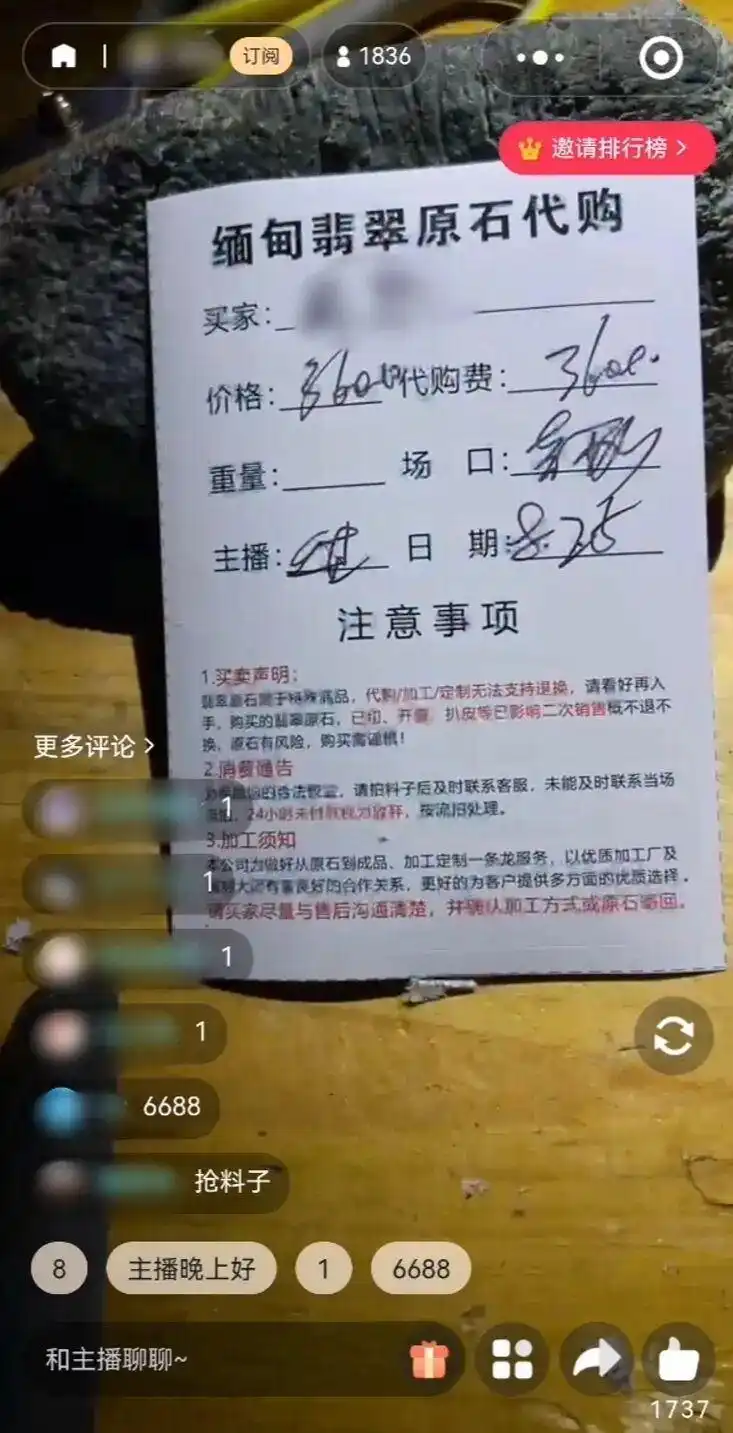 订阅
1836
邀请排行榜 >
缅甸翡翠原石代购
买家：
价格： 代购费：
重量： 场 口：
主播： 日 期：8.25
注意事项
1.买卖声明：
翡翠原石属于特殊商品，代购/加工/定制无法支持退换，请看好再入
手，购买的翡翠原石，已切、开窗、扒皮等已影响二次销售概不退不
换，原石有风险，购买需谨慎！
2.消费通告
请拍料子后及时联系客服，未能及时联系当场
24小时未付款视为放弃，按流拍处理。
3.加工须知
本公司为做好从原石到成品、加工定制一条龙服务，以优质加工厂及
有着良好的合作关系，更好的为客户提供多方面的优质选择。
请买家尽量与售后沟通清楚，并确认加工方式或原石寄回。
更多评论 >
1
1
1
1
6688
抢料子
8 主播晚上好 1 6688
和主播聊聊~
1737